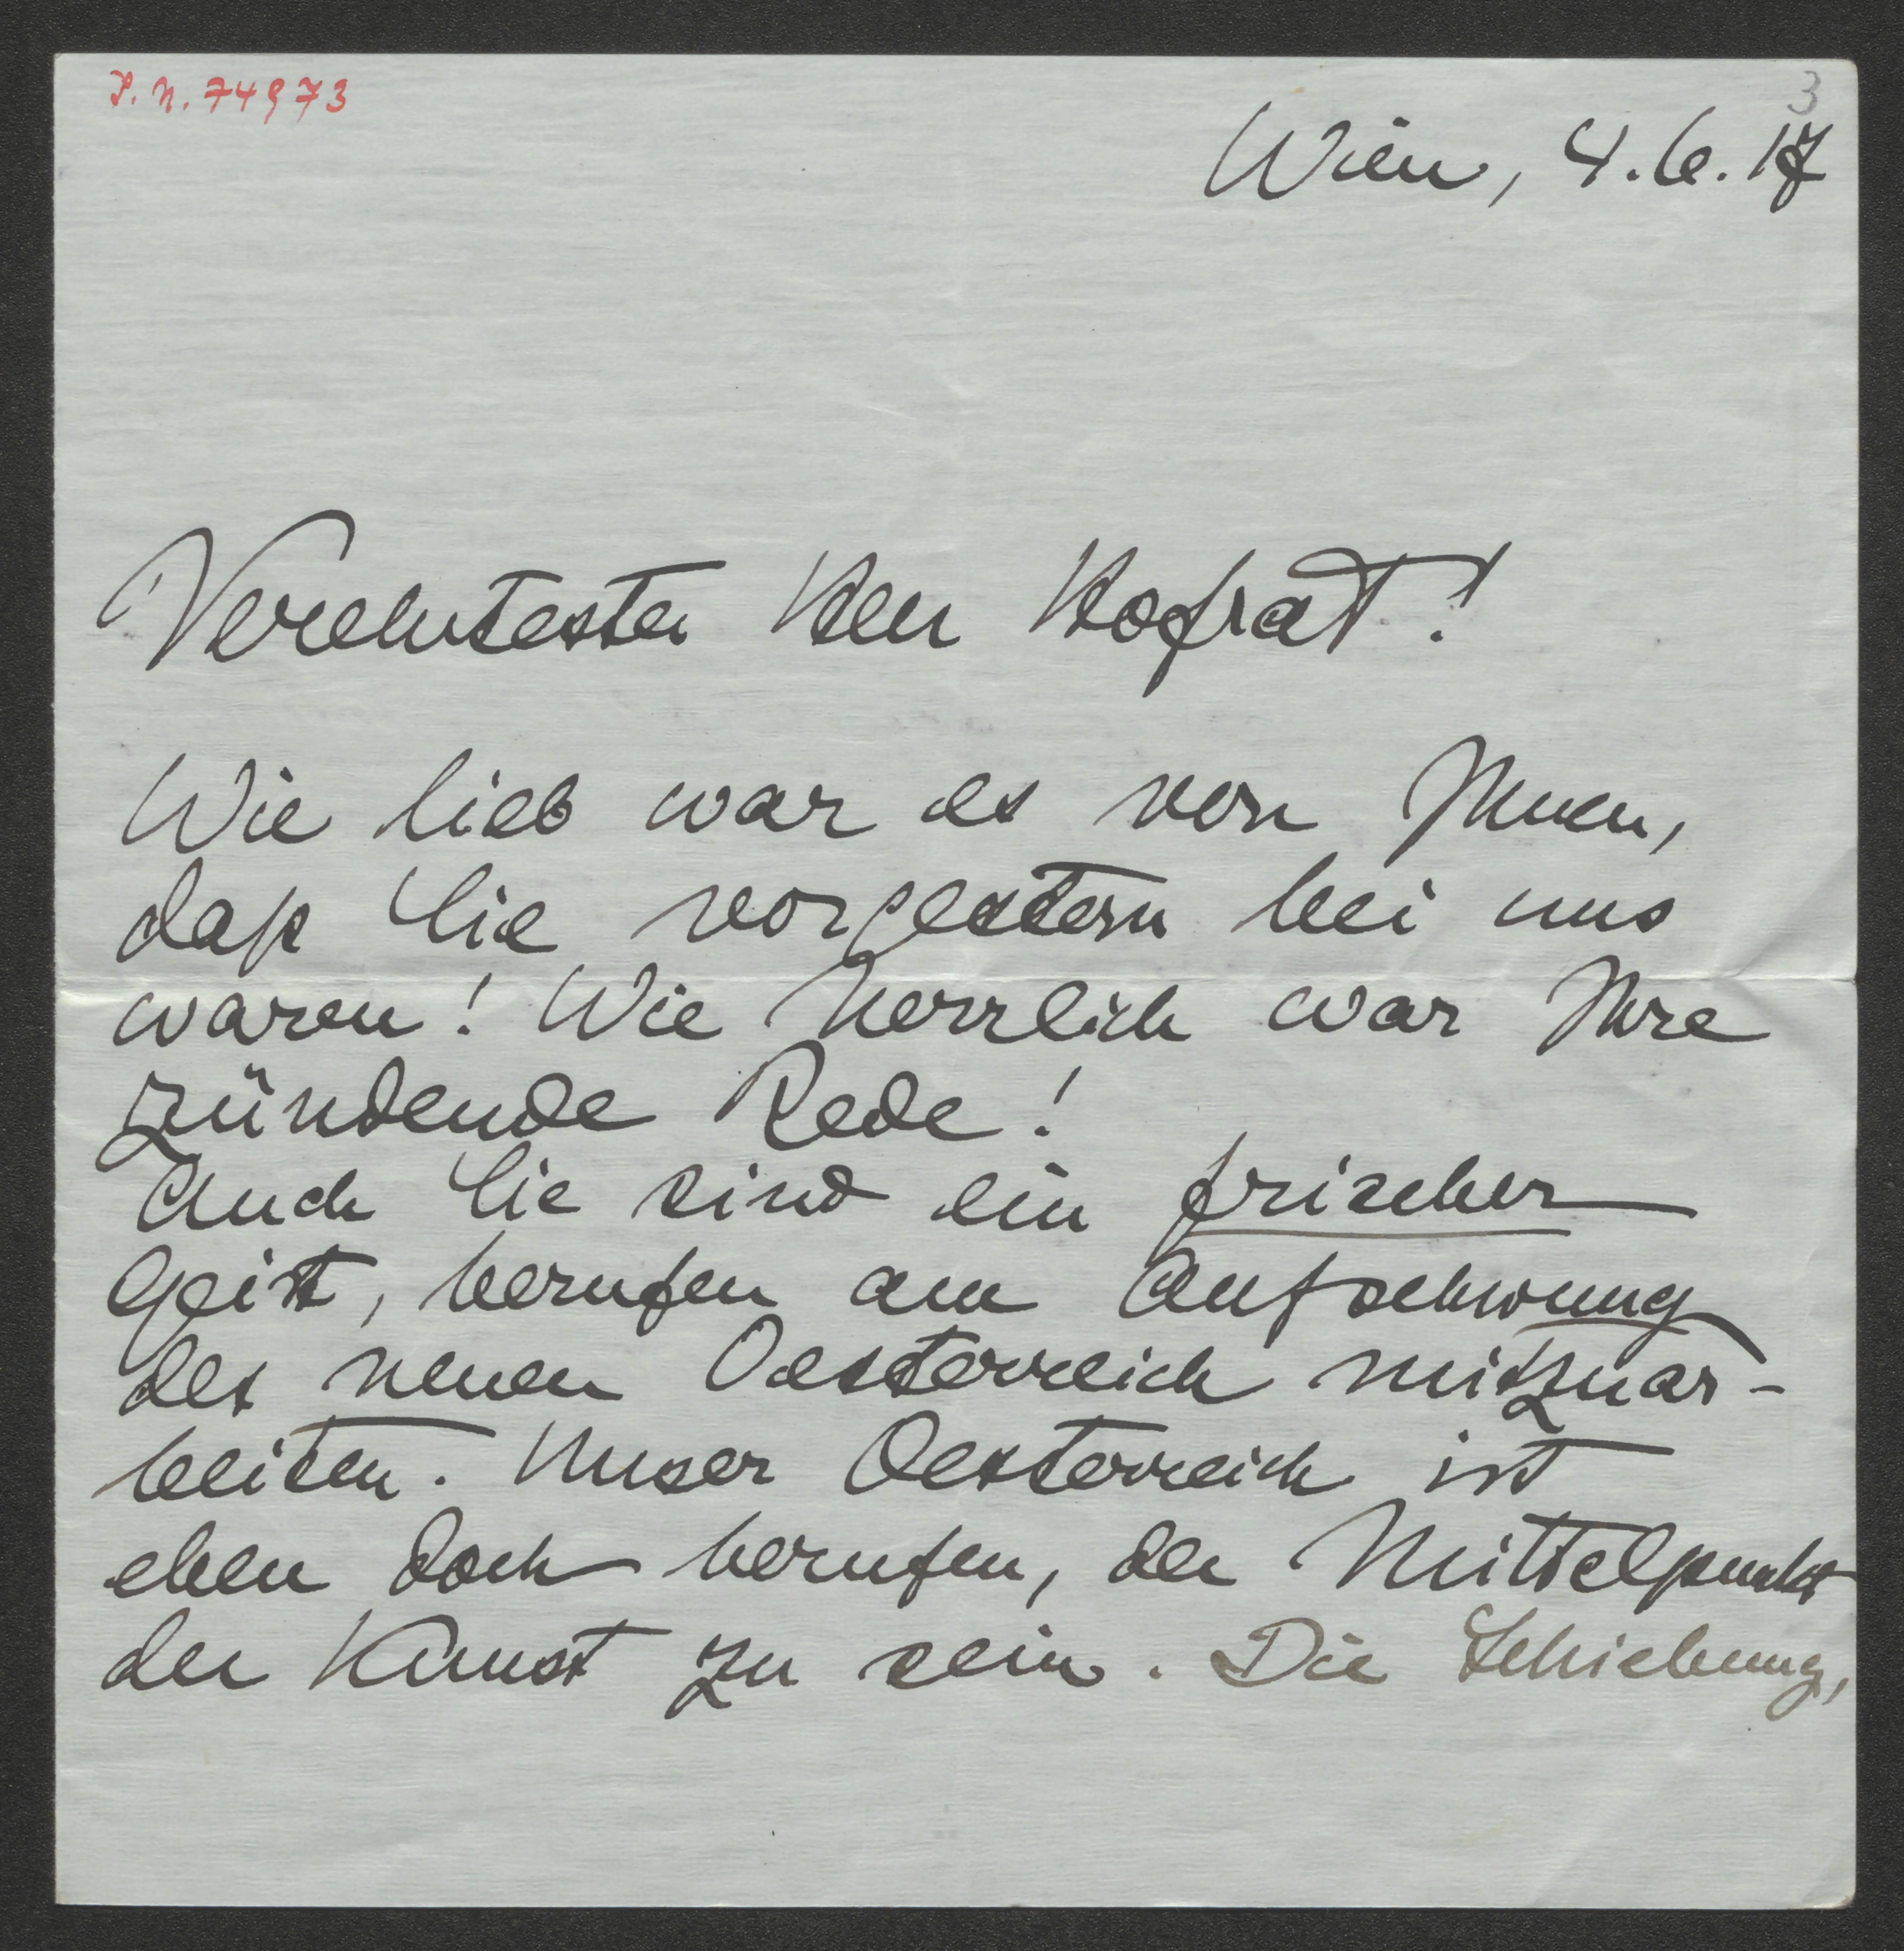 I. N. 74973
3
Wien, 4.6.17
Verehrtester Herr Hofrat!
Wie lieb war es von Ihnen,
daß Sie vorgestern bei uns
waren! Wie herrlich war Ihre
zündende Rede!
Auch Sie sind ein frischer
Geist, berufen am Aufschwung
des neuen Oesterreich mitzuar-
beiten. Unser Oesterreich ist
eben doch berufen, der Mittelpunkt
der Kunst zu sein. Die Schiebung,